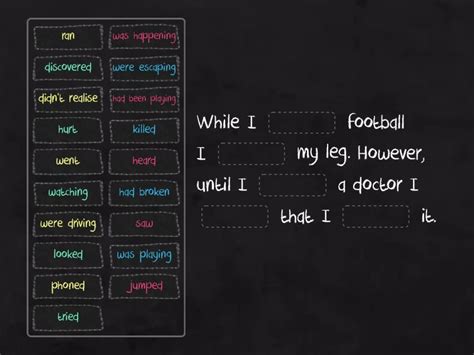 ran
was happening
discovered
were escaping
didn't realise
had been playing
hurt
killed
went
heard
watching
had broken
were driving
saw
looked
was playing
phoned
jumped
tried
While I football
I my leg. However,
until I a doctor I
that I it.